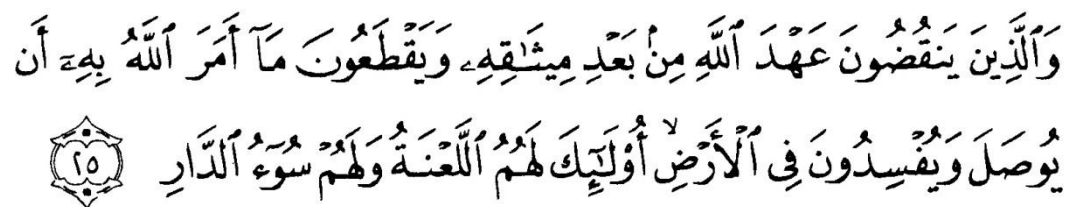 وَٱلَّذِينَ يَنقُضُونَ عَهْدَ ٱللَّهِ مِنۢ بَعْدِ مِيثَٰقِهِۦ وَيَقْطَعُونَ مَآ أَمَرَ ٱللَّهُ بِهِۦٓ أَن
يُوصَلَ وَيُفْسِدُونَ فِى ٱلْأَرْضِ ۙ أُو۟لَٰٓئِكَ لَهُمُ ٱللَّعْنَةُ وَلَهُمْ سُوٓءُ ٱلدَّارِ ٢٥